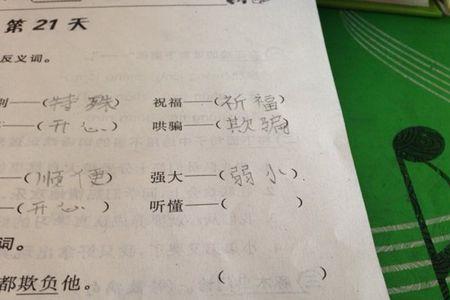 第 21 天
反义词。
别——(特殊) 祝福——(祈福)
——(开心) 哄骗——(欺骗)
——(顺便) 强大——(弱小)
——(开心) 听懂——( )
词。
都欺负他。 ( )